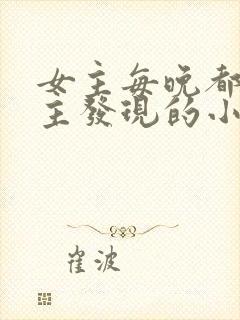 女主每晚都
主發現的小
崔波